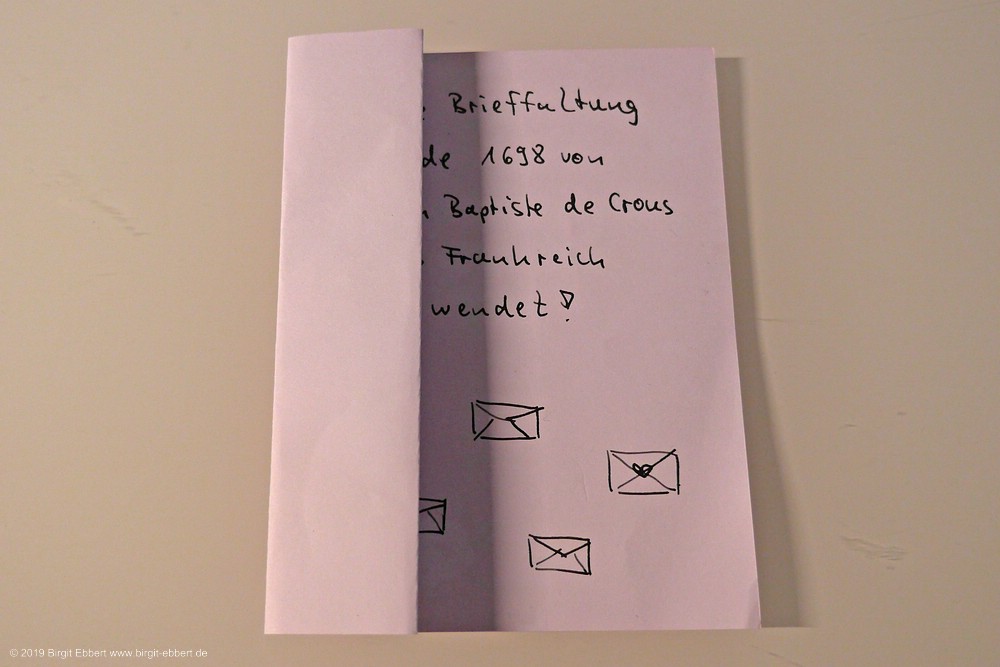 Brieffaltung
de 1698 von
Baptiste de Crous
Frankreich
wendet!
© 2019 Birgit Ebbert www.birgit-ebbert.de